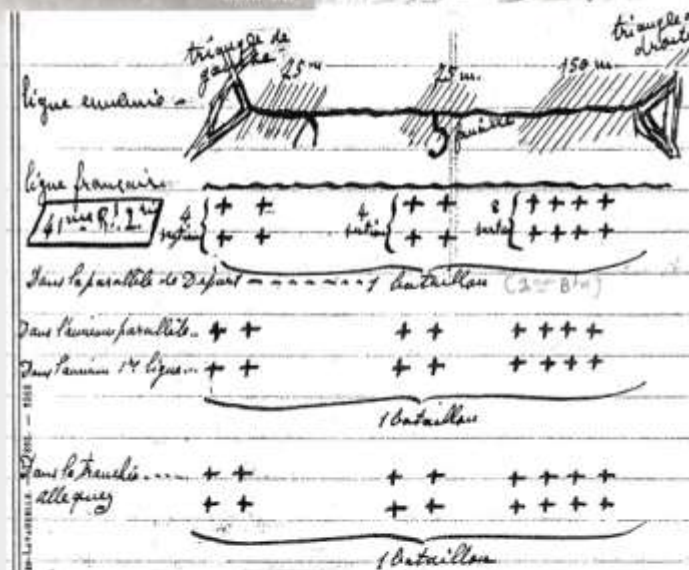 triangle de
gauche
25 m
25 m.
150 m.
triangle
droite
ligne ennemie
ligne française
41ème R.I. 2ème
4
sections
4
sections
8
sections
Dans la parallèle de Départ 1 bataillon (2ème Btn)
Dans l'ancienne parallèle
Dans l'ancienne 1re ligne
1 bataillon
Dans la tranchée
1 bataillon